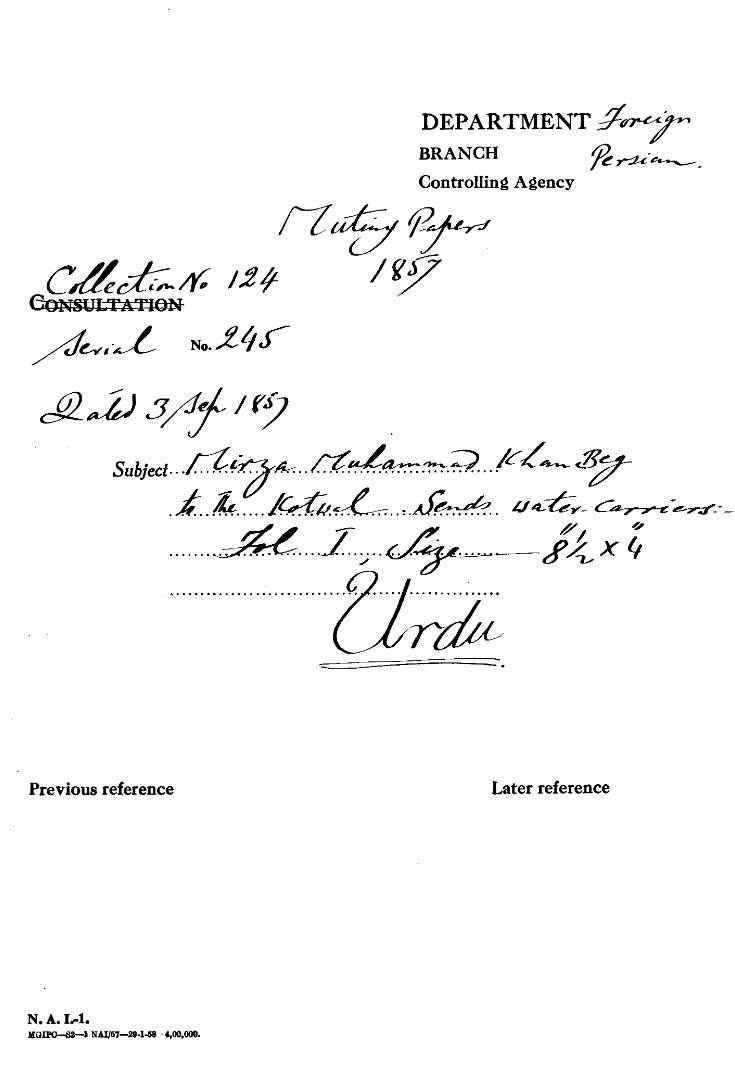 DEPARTMENT Foreign
BRANCH Persian.
Controlling Agency
Mutiny Papers
1857
Collection No 124
CONSULTATION
Serial No. 245
Dated 3 Sep 1857
Subject Mirza Muhammad Khan Beg
to the Kotwal Sends water-carriers:-
Fol I, Size 8½" x 4"
Urdu
Previous reference Later reference
N. A. I.-1.
MGIPC—S2—1 NAI/57—29-1-58 4,00,000.